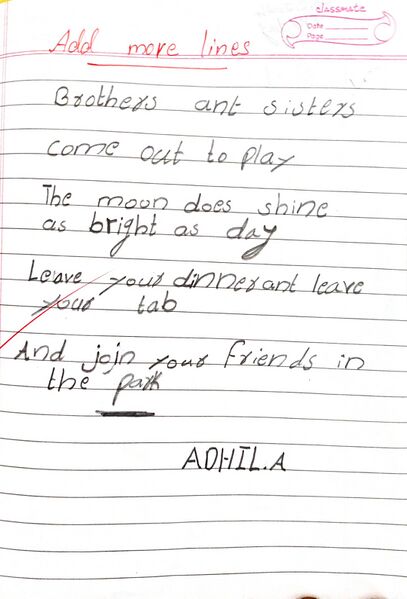 classmate
Date
Page
Add more lines
Brothers ant sisters
come out to play
The moon does shine
as bright as day
Leave your dinner ant leave
your tab
And join your friends in
the park
ADHIL.A